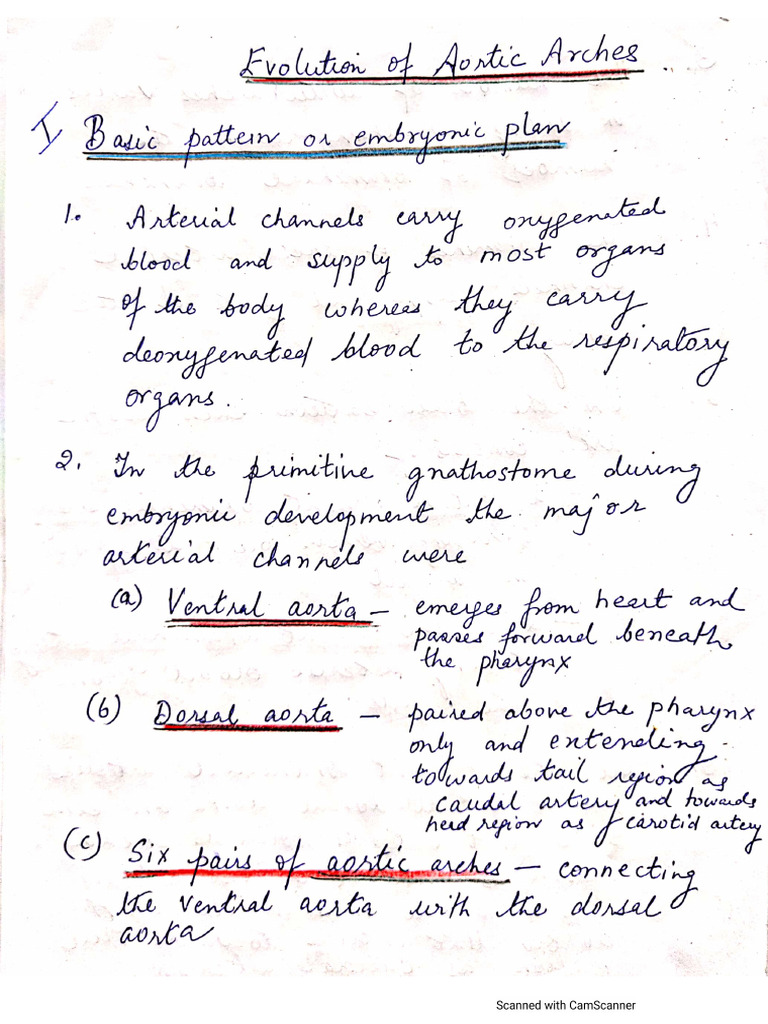 Evolution of Aortic Arches
I Basic pattern or embryonic plan
1. Arterial channels carry oxygenated
blood and supply to most organs
of the body whereas they carry
deoxygenated blood to the respiratory
organs.
2. In the primitive gnathostome during
embryonic development the major
arterial channels were
(a) Ventral aorta – emerges from heart and
passes forward beneath
the pharynx
(b) Dorsal aorta – paired above the pharynx
only and extending
towards tail region as
caudal artery and towards
head region as carotid artery
(c) Six pairs of aortic arches – connecting
the ventral aorta with the dorsal
aorta
Scanned with CamScanner